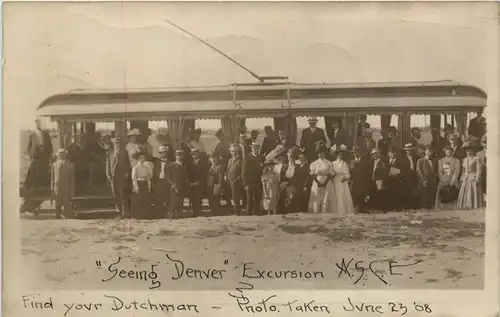 "Seeing Denver" Excursion N.S.C.E.
Find your Dutchman - Photo. taken June 23 '08